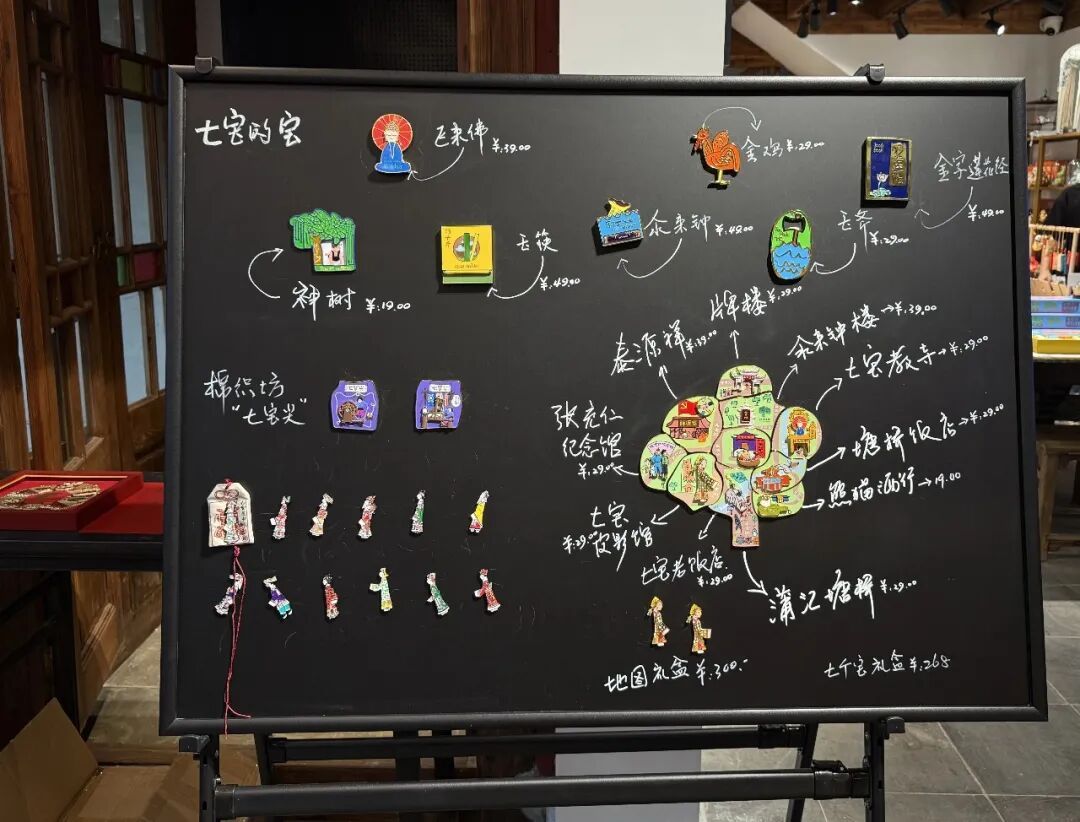 七宝的宝
飞来佛 ¥:39.00
金鸡 ¥:29.00
金字莲花经
¥:49.00
神树 ¥:19.00
玉筷
¥:49.00
氽来钟 ¥:49.00
玉斧
¥:29.00
棉织坊
"七宝尖"
泰源祥 ¥:39.00
牌楼 ¥:29.00
氽来钟楼 → ¥:39.00
七宝教寺 → ¥:29.00
张充仁
纪念馆
¥:29.00
塘桥饭店 → ¥:29.00
熊猫酒行 → 19.00
七宝
皮影馆
¥:29.00
七宝老饭店
¥:29.00
蒲汇塘桥 ¥:29.00
地图礼盒 ¥:300.-
七个宝礼盒 ¥:268